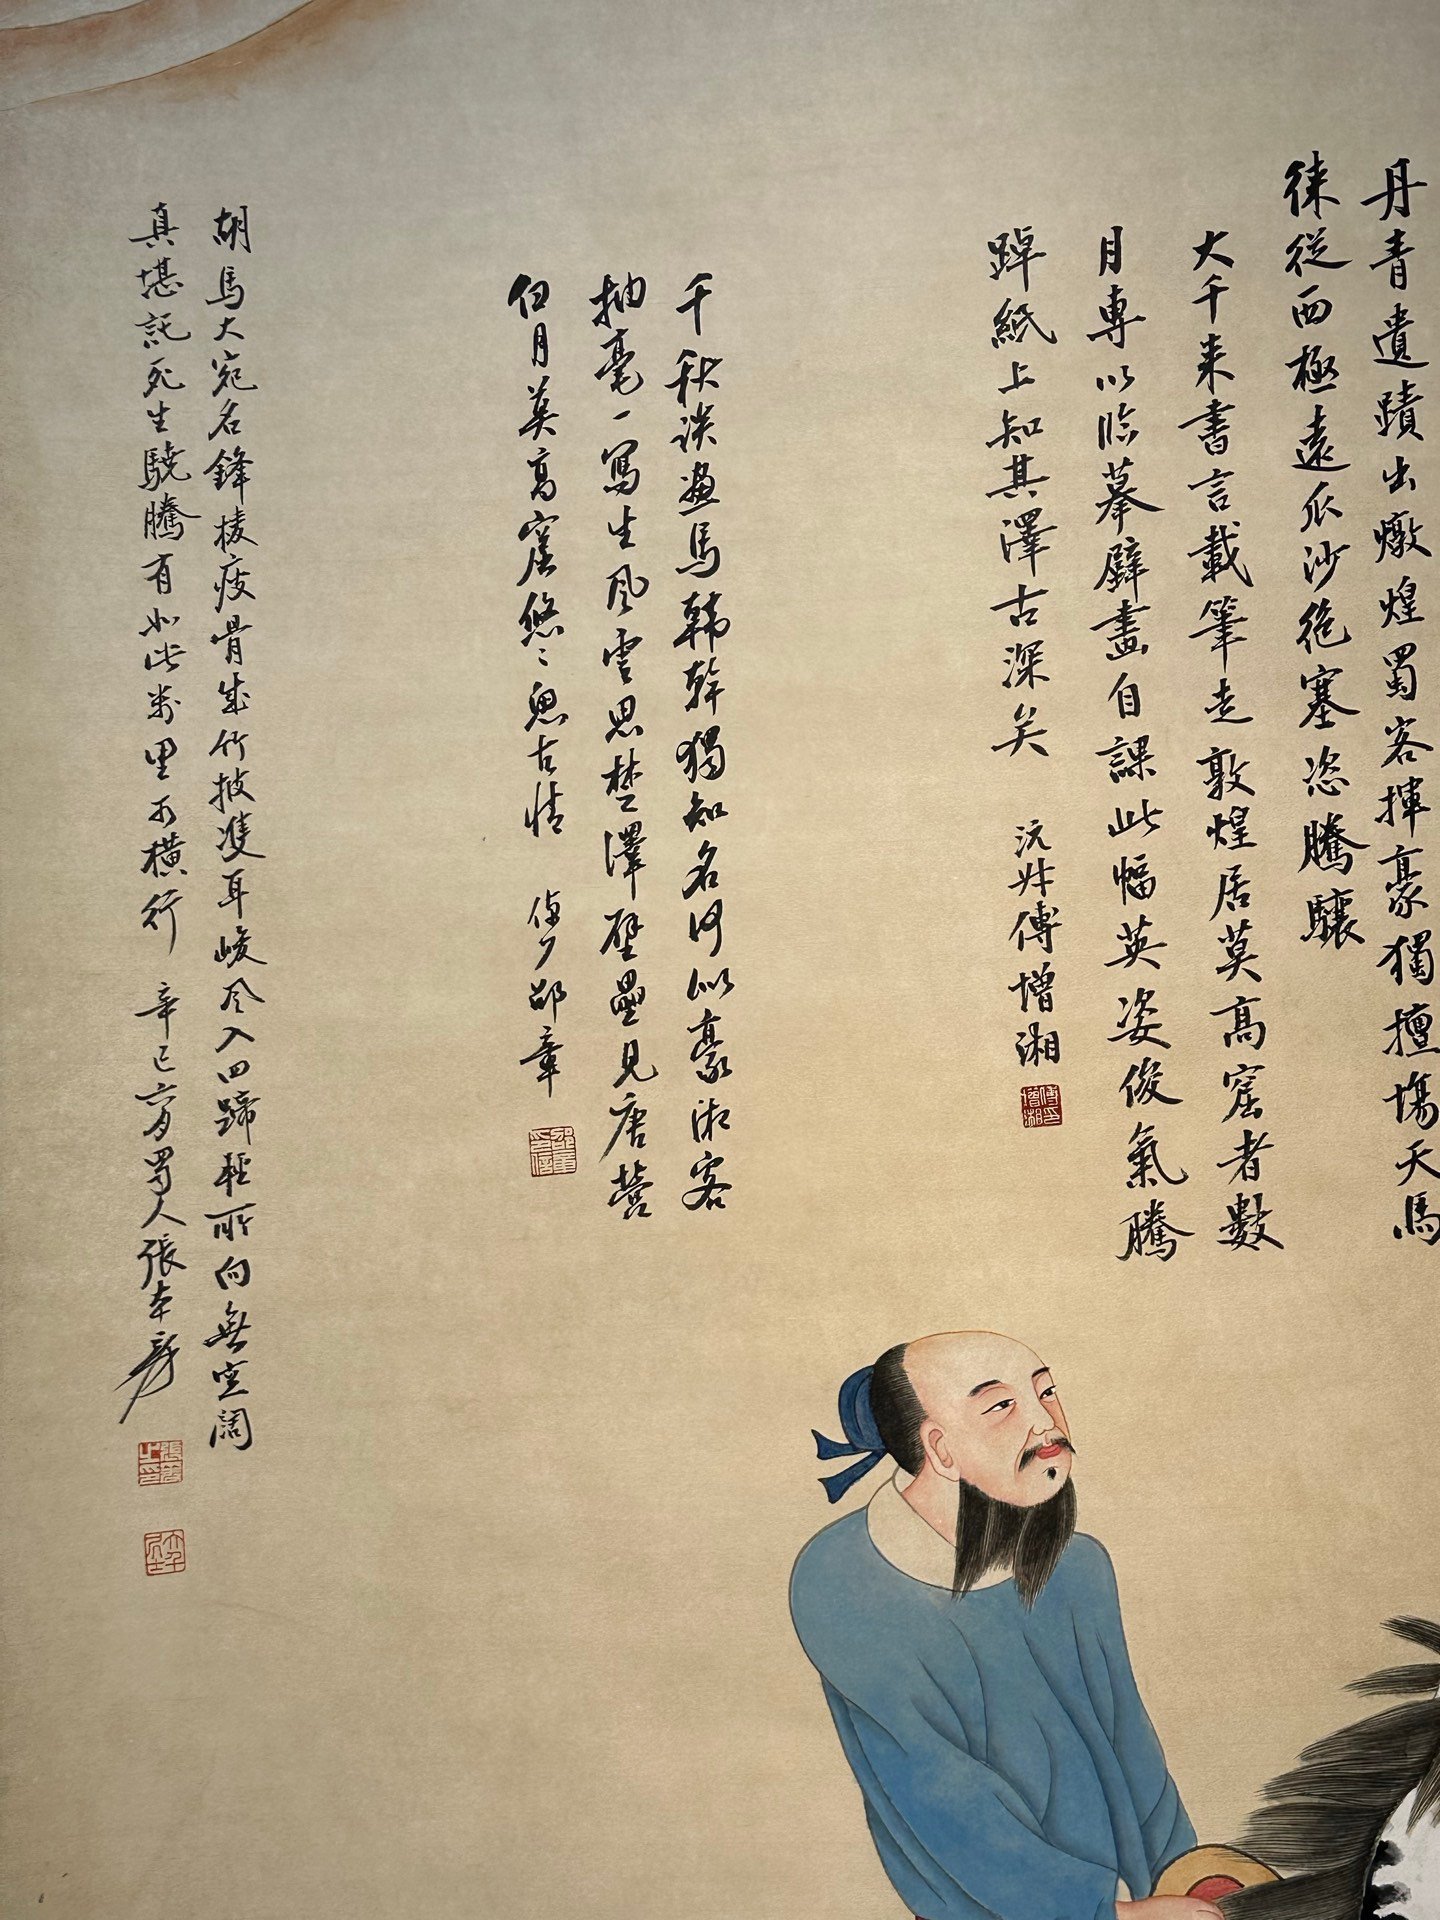 丹青遺蹟出燉煌蜀客揮豪獨擅塲天馬
徠從西極遠瓜沙絶塞恣騰驤
大千来書言載筆走敦煌居莫高窟者數
月專以臨摹壁畫自課此幅英姿俊氣騰
踔紙上知其澤古深矣 沅叔傅增湘
傅增湘印
千秋談畫馬韓幹獨知名何似豪湘客
抽毫一寫生風雲思楚澤壁壘見唐營
何月莫高窟悠〻思古情 邵章
胡馬大宛名鋒棱瘦骨成竹披雙耳峻風入四蹄輕所向無空闊
真堪託死生驍騰有如此萬里可橫行 辛巳 蜀人張大千爰
張爰之印